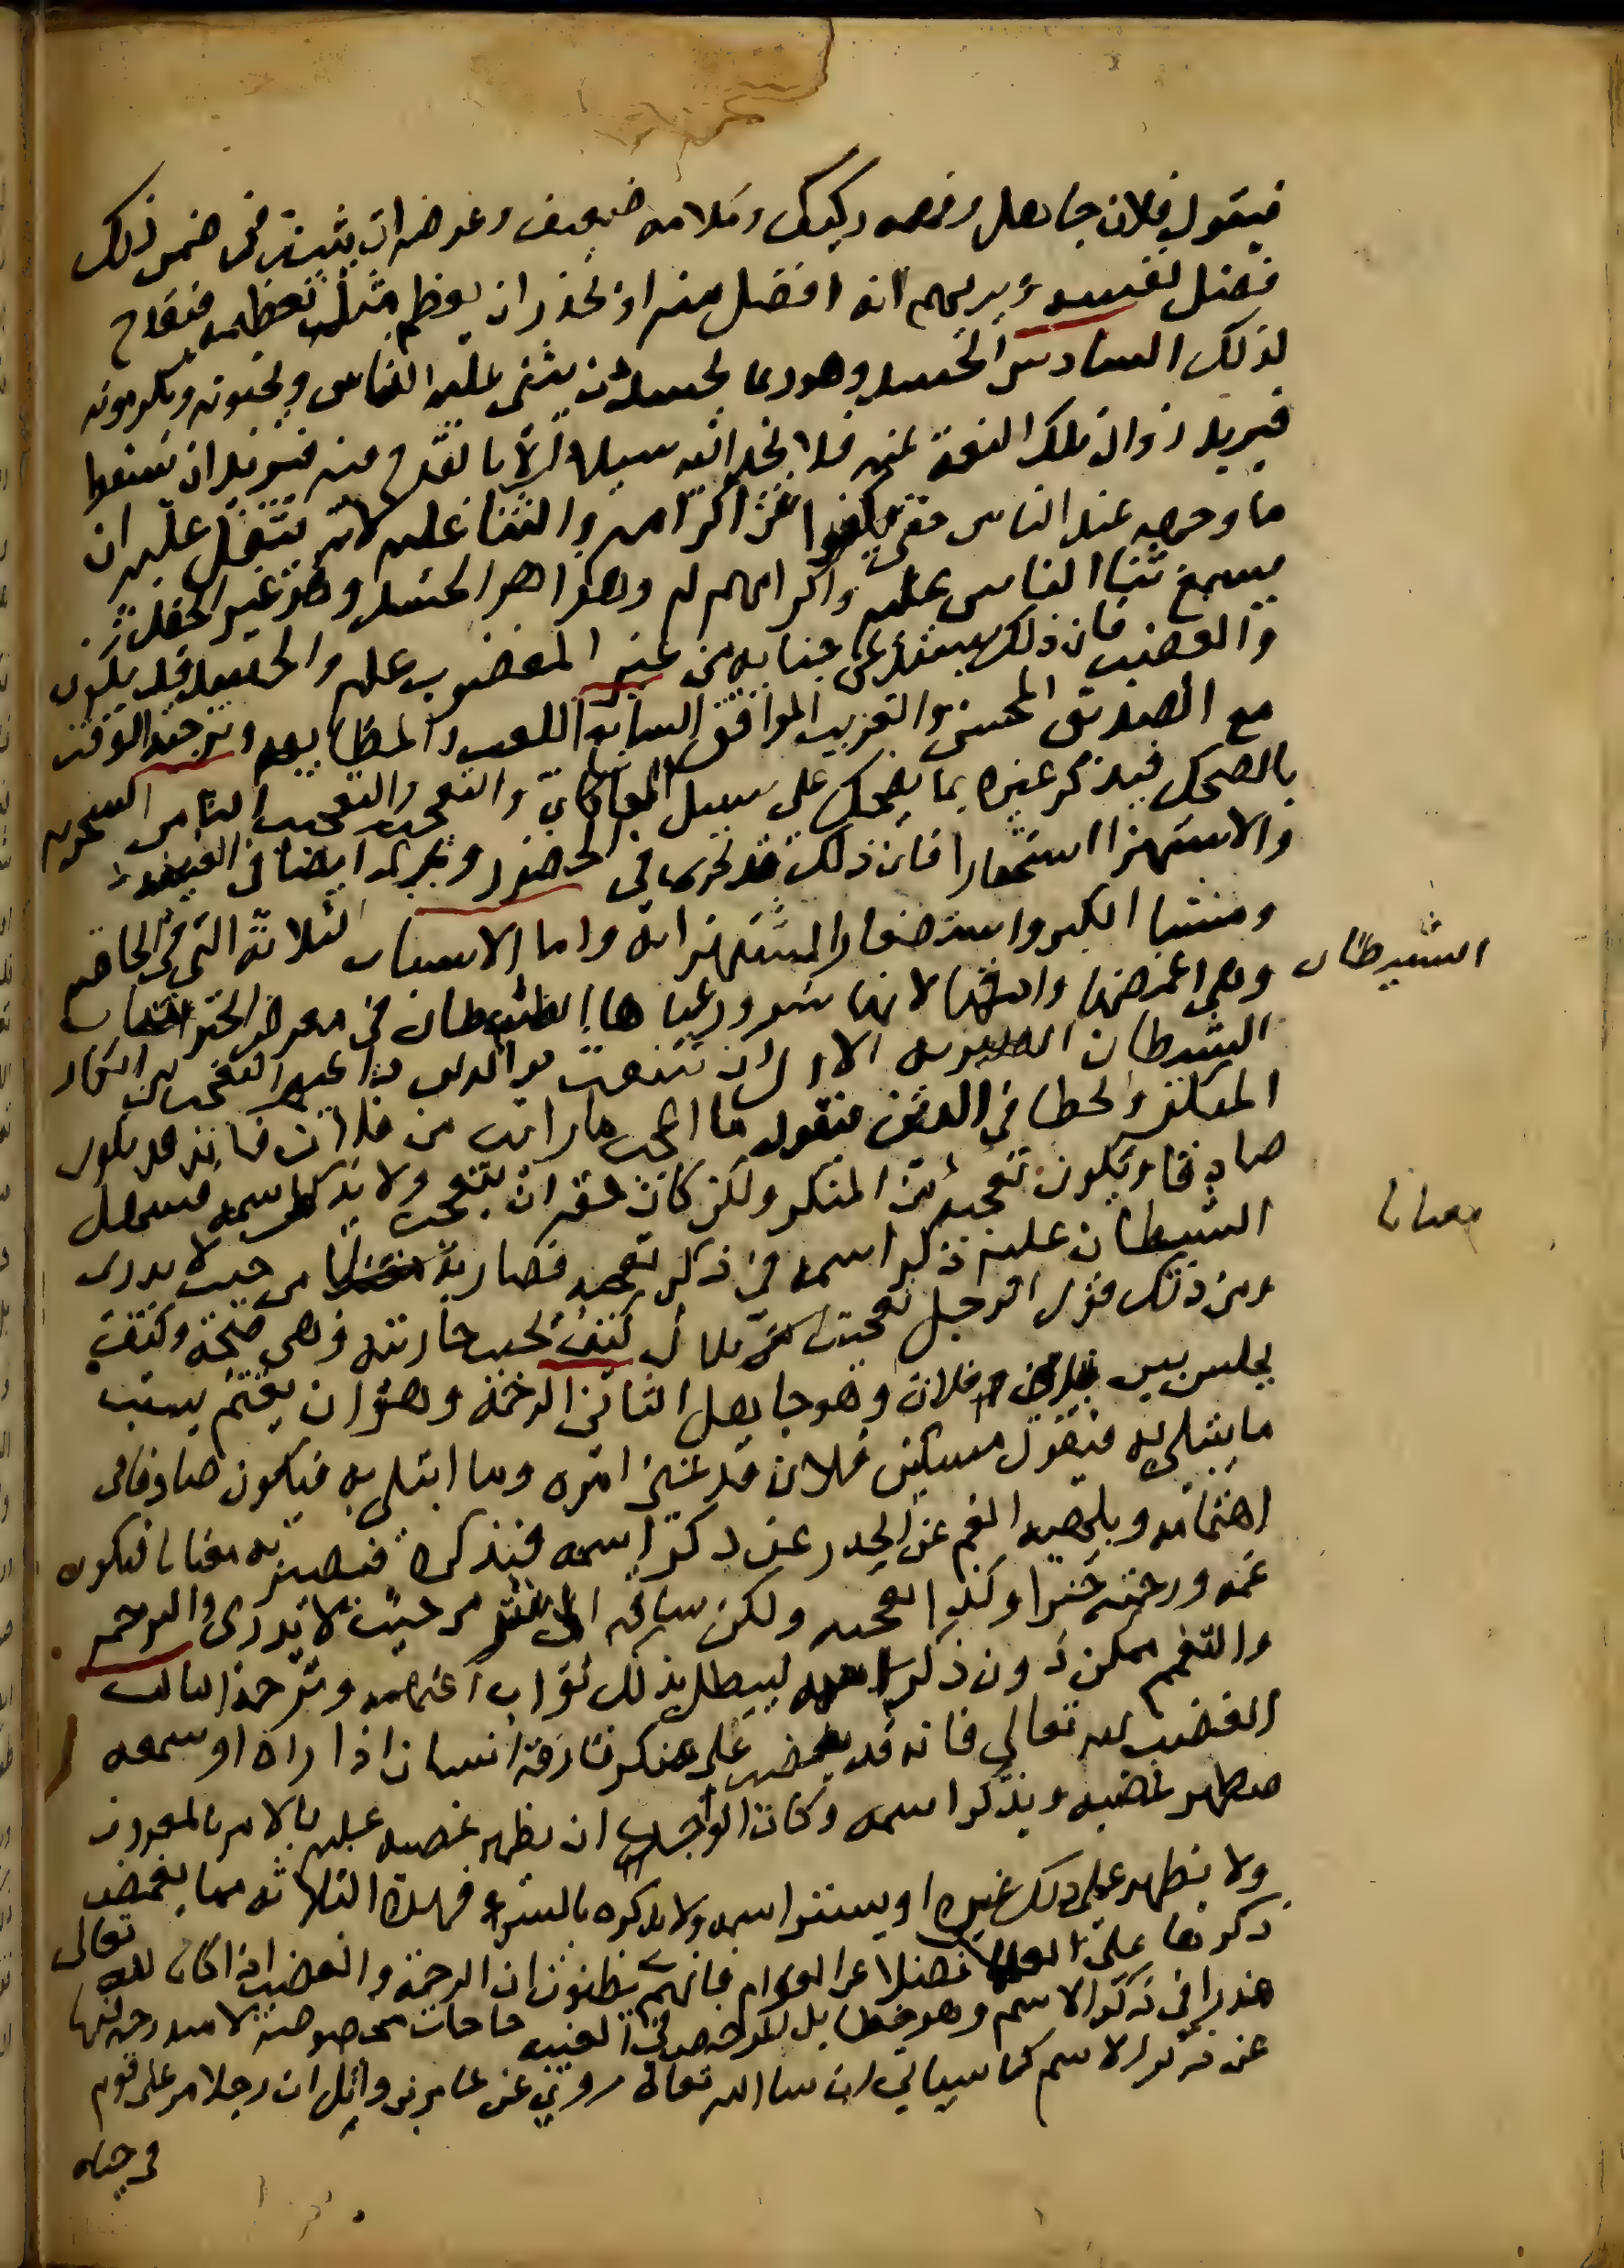 فيقول فلان جاهل وفهمه ركيك وكلامه ضعيف وغرضه ان يثبت في ضمن ذلك
فضل نفسه ويريهم انه افضل منه او يحذر ان يعظم مثل تعظيمه فيقدح
لذلك السادس الحسد وهو ربما يحسد من يثني عليه الناس ويحبونه ويكرمونه
فيريد زوال تلك النعمة عنه فلا يجد اليه سبيلا الا بالقدح فيه فيريد ان يسقط
ما وجهه عند الناس حتى يكفوا عن اكرامه والثنا عليه لانه يثقل عليه ان
يسمع ثنا الناس عليه واكرامهم له وهذا هو الحسد وهو غير الحقد
والغضب فان ذلك يستدعي جناية من غير المغضوب عليه والحسد قد يكون
مع الصديق المحسن والقريب الموافق السابع اللعب والمطايبه وترجية الوقت
بالضحك فيذكر غيره بما يضحك على سبيل المحاكاة والتعجب والتعجيب الثامن السخريه
والاستهزا استحقارا فان ذلك قد يجري في الحضور ويجري ايضا في الغيبه
ومنشا الكبر واستصغار المستهزا به واما الاسباب الثلاثة التي في الخاصه
وهي اغمضها وادقها لانها شرور عباها الشيطان في معرض الخيرات
الشيطان
الشيطان الاول ان تنبعث من الدين داعية التعجب من انكار
المنكر والخطا في الدين فيقول ما اعجب ما رايت من فلان فانه قد يكون
صادقا ويكون تعجبه من المنكر ولكن كان حقه ان يتعجب ولا يذكر اسمه فيسهل
الشيطان عليه ذكر اسمه في ذكر تعجبه فصار به مغتابا من حيث لا يدرى
مغتابا
ومن ذلك قول الرجل تعجبت من فلان كيف يحب جاريته وهي قبيحة وكيف
يجلس بين يدي فلان وهو جاهل الثاني الرحمة وهو ان يغتم بسبب
ما يبتلى به فيقول مسكين فلان قد غمني امره وما ابتلي به فيكون صادقا في
اغتمامه ويلهيه الغم عن الحذر عن ذكر اسمه فيذكره فيصير به مغتابا فيكون
غمه ورحمته خيرا وكذا تعجبه ولكن ساقه الى شر من حيث لا يدرى والترحم
والتغمم ممكن دون ذكر اسمه ليبطل بذلك ثواب اغتمامه وترحمه الثالث
الغضب لله تعالى فانه قد يغضب على منكر قارفه انسان اذا راه او سمعه
فيظهر غضبه ويذكر اسمه وكان الواجب ان يظهر غضبه عليه بالامر بالمعروف
ولا يظهره على ذلك غيره او يستر اسمه ولا يذكره بالسوء فهذه الثلاثه مما يغمض
ذكرها على العلما فضلا عن العوام فانهم يظنون ان الرحمة والغضب اذا كان لله تعالى
عذرا في ذكر الاسم وهو خطا بل المرخص في الغيبه حاجات مخصوصة لا مندوحة لها
عن ذكر الاسم كما سياتي ان شا الله تعالى روي عن عامر بن واثل ان رجلا مر على قوم
في حياه